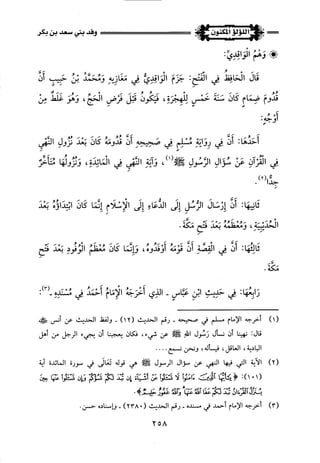 اللؤلؤ المكنون
وفد بني سعد بن بكر
* وَهْمُ الْوَاقِدِيِّ:
قَالَ الْحَافِظُ فِي الْفَتْحِ: جَزَمَ الْوَاقِدِيُّ فِي مَغَازِيهِ وَمُحَمَّدُ بْنُ حَبِيبٍ أَنَّ
قُدُومَ ضِمَامٍ كَانَ سَنَةَ خَمْسٍ لِلْهِجْرَةِ، فَيَكُونُ قَبْلَ فَرْضِ الْحَجِّ، وَهُوَ غَلَطٌ مِنْ
أَوْجُهٍ:
أَحَدُهَا: أَنَّ فِي رِوَايَةِ مُسْلِمٍ فِي صَحِيحِهِ أَنَّ قُدُومَهُ كَانَ بَعْدَ نُزُولِ النَّهْيِ
فِي الْقُرْآنِ عَنْ سُؤَالِ الرَّسُولِ ﷺ(١)، وَآيَةُ النَّهْيِ فِي الْمَائِدَةِ، وَنُزُولُهَا مُتَأَخِّرٌ
جِدًّا(٢).
ثَانِيهَا: أَنَّ إِرْسَالَ الرُّسُلِ إِلَى الدُّعَاءِ إِلَى الْإِسْلَامِ إِنَّمَا كَانَ ابْتِدَاؤُهُ بَعْدَ
الْحُدَيْبِيَةِ، وَمُعْظَمُهُ بَعْدَ فَتْحِ مَكَّةَ.
ثَالِثُهَا: أَنَّ فِي الْقِصَّةِ أَنَّ قَوْمَهُ أَوْفَدُوهُ، وَإِنَّمَا كَانَ مُعْظَمُ الْوُفُودِ بَعْدَ فَتْحِ
مَكَّةَ.
رَابِعُهَا: فِي حَدِيثِ ابْنِ عَبَّاسٍ - الَّذِي أَخْرَجَهُ الْإِمَامُ أَحْمَدُ فِي مُسْنَدِهِ -(٣):
(١) أخرج الإمام مسلم في صحيحه - رقم الحديث (١٢) - ولفظ الحديث عن أنس ﷺ
قال: نهينا أن نسأل رسول الله ﷺ عن شيء، فكان يعجبنا أن يجيء الرجل من أهل
البادية، العاقل، فيسأله، ونحن نسمع....
(٢) الآية التي فيها النهي عن سؤال الرسول ﷺ هي قوله تعالى في سورة المائدة آية
(١٠١): ﴿يَا أَيُّهَا الَّذِينَ آمَنُوا لَا تَسْأَلُوا عَنْ أَشْيَاءَ إِنْ تُبْدَ لَكُمْ تَسُؤْكُمْ وَإِنْ تَسْأَلُوا عَنْهَا حِينَ
يُنَزَّلُ الْقُرْآنُ تُبْدَ لَكُمْ عَفَا اللَّهُ عَنْهَا وَاللَّهُ غَفُورٌ حَلِيمٌ﴾.
(٣) أخرجه الإمام أحمد في مسنده - رقم الحديث (٢٣٨٠) - وإسناده حسن.
٢٥٨